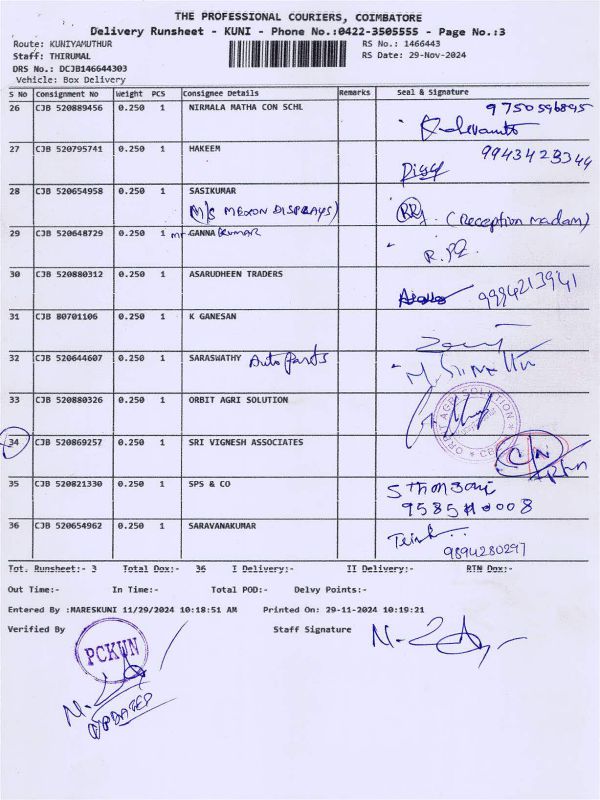 THE PROFESSIONAL COURIERS, COIMBATORE
Delivery Runsheet - KUNI - Phone No.:0422-3505555 - Page No.:3
Route: KUNIYAMUTHUR RS No.: 1466443
Staff: THIRUMAL RS Date: 29-Nov-2024
DRS No.: DCJB146644303
Vehicle: Box Delivery
S No Consignment No Weight PCS Consignee Details Remarks Seal & Signature
26 CJB 520889456 0.250 1 NIRMALA MATHA CON SCHL 9750596895
27 CJB 520795741 0.250 1 HAKEEM 9943423344
28 CJB 520654958 0.250 1 SASIKUMAR
M/s MEXON DISPLAYS) (Reception madam)
29 CJB 520648729 0.250 1 mr GANNA Kumar
30 CJB 520880312 0.250 1 ASARUDHEEN TRADERS 9994213941
31 CJB 80701106 0.250 1 K GANESAN
32 CJB 520644607 0.250 1 SARASWATHY Auto Parts
33 CJB 520880326 0.250 1 ORBIT AGRI SOLUTION
34 CJB 520869257 0.250 1 SRI VIGNESH ASSOCIATES
35 CJB 520821330 0.250 1 SPS & CO
36 CJB 520654962 0.250 1 SARAVANAKUMAR
9894280297
Tot. Runsheet:- 3 Total Dox:- 36 I Delivery:- II Delivery:- RTN Dox:-
Out Time:- In Time:- Total POD:- Delvy Points:-
Entered By :MARESKUNI 11/29/2024 10:18:51 AM Printed On: 29-11-2024 10:19:21
Verified By Staff Signature
PCKUN
UPDATED